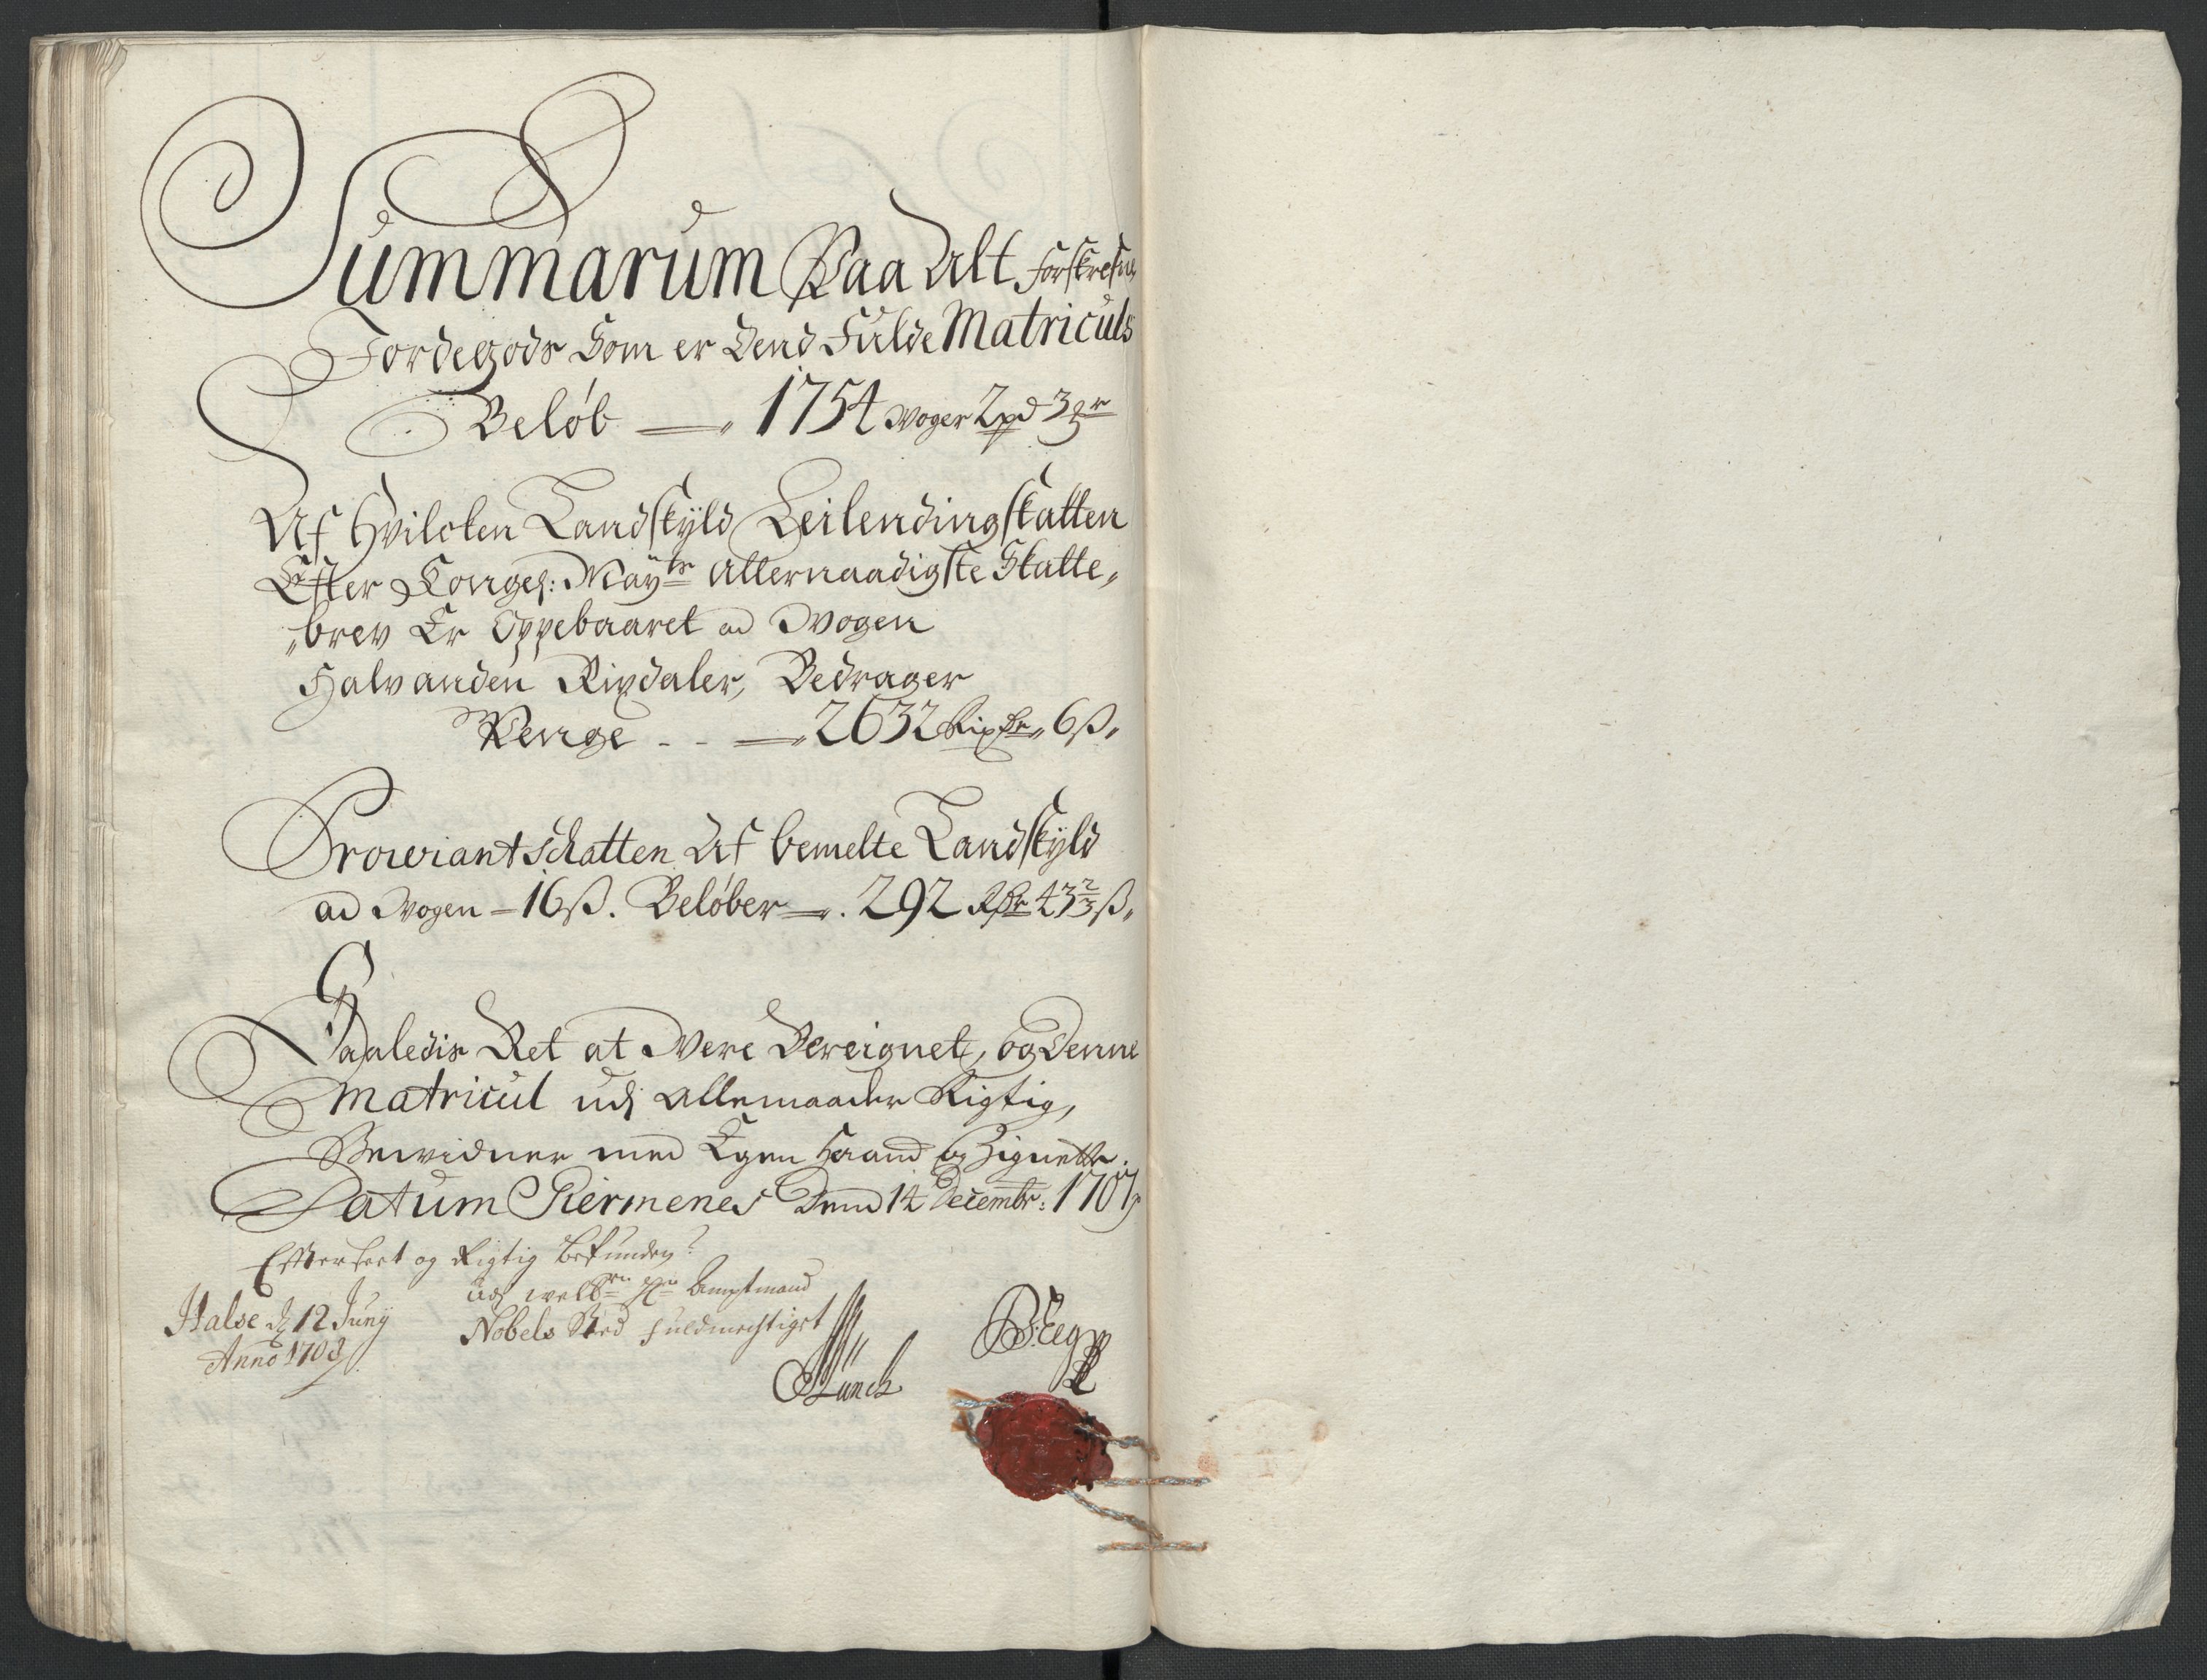 Summarum Paa Alt forskrefne
Jordegods Som er Dend Fulde Matriculs
Beløb — 1754 Woger 2 pd 3 mr
Af Hvilcken Landskyld Leilendingskatten
Efter Kongel: Mayts Allernaadigste Skatte„
„brev Er Oppebaaret ad Wogen
Halvanden Rixdaler, Bedrager
Penge - - — 2632 Rixdr„ 6 ß„
Proviantschatten Af bemelte Landskyld
ad Wogen — 16 ß. Beløber —. 292 Rdr 43 2/3 ß„
Saaledis Ret at Were Bereignet, og Denne
Matricul udj allemaader Rigtig,
Bewidner med Egen Haand og Zignette.
Datum Giermenes Dend 14 Decembr: 1707
Effterseet og Rigtig befunden
udj welbrn Hrn Amptmand
Nobels Sted fuldmechtiget
Halse d 12 Juny
Anno 1708
Münch